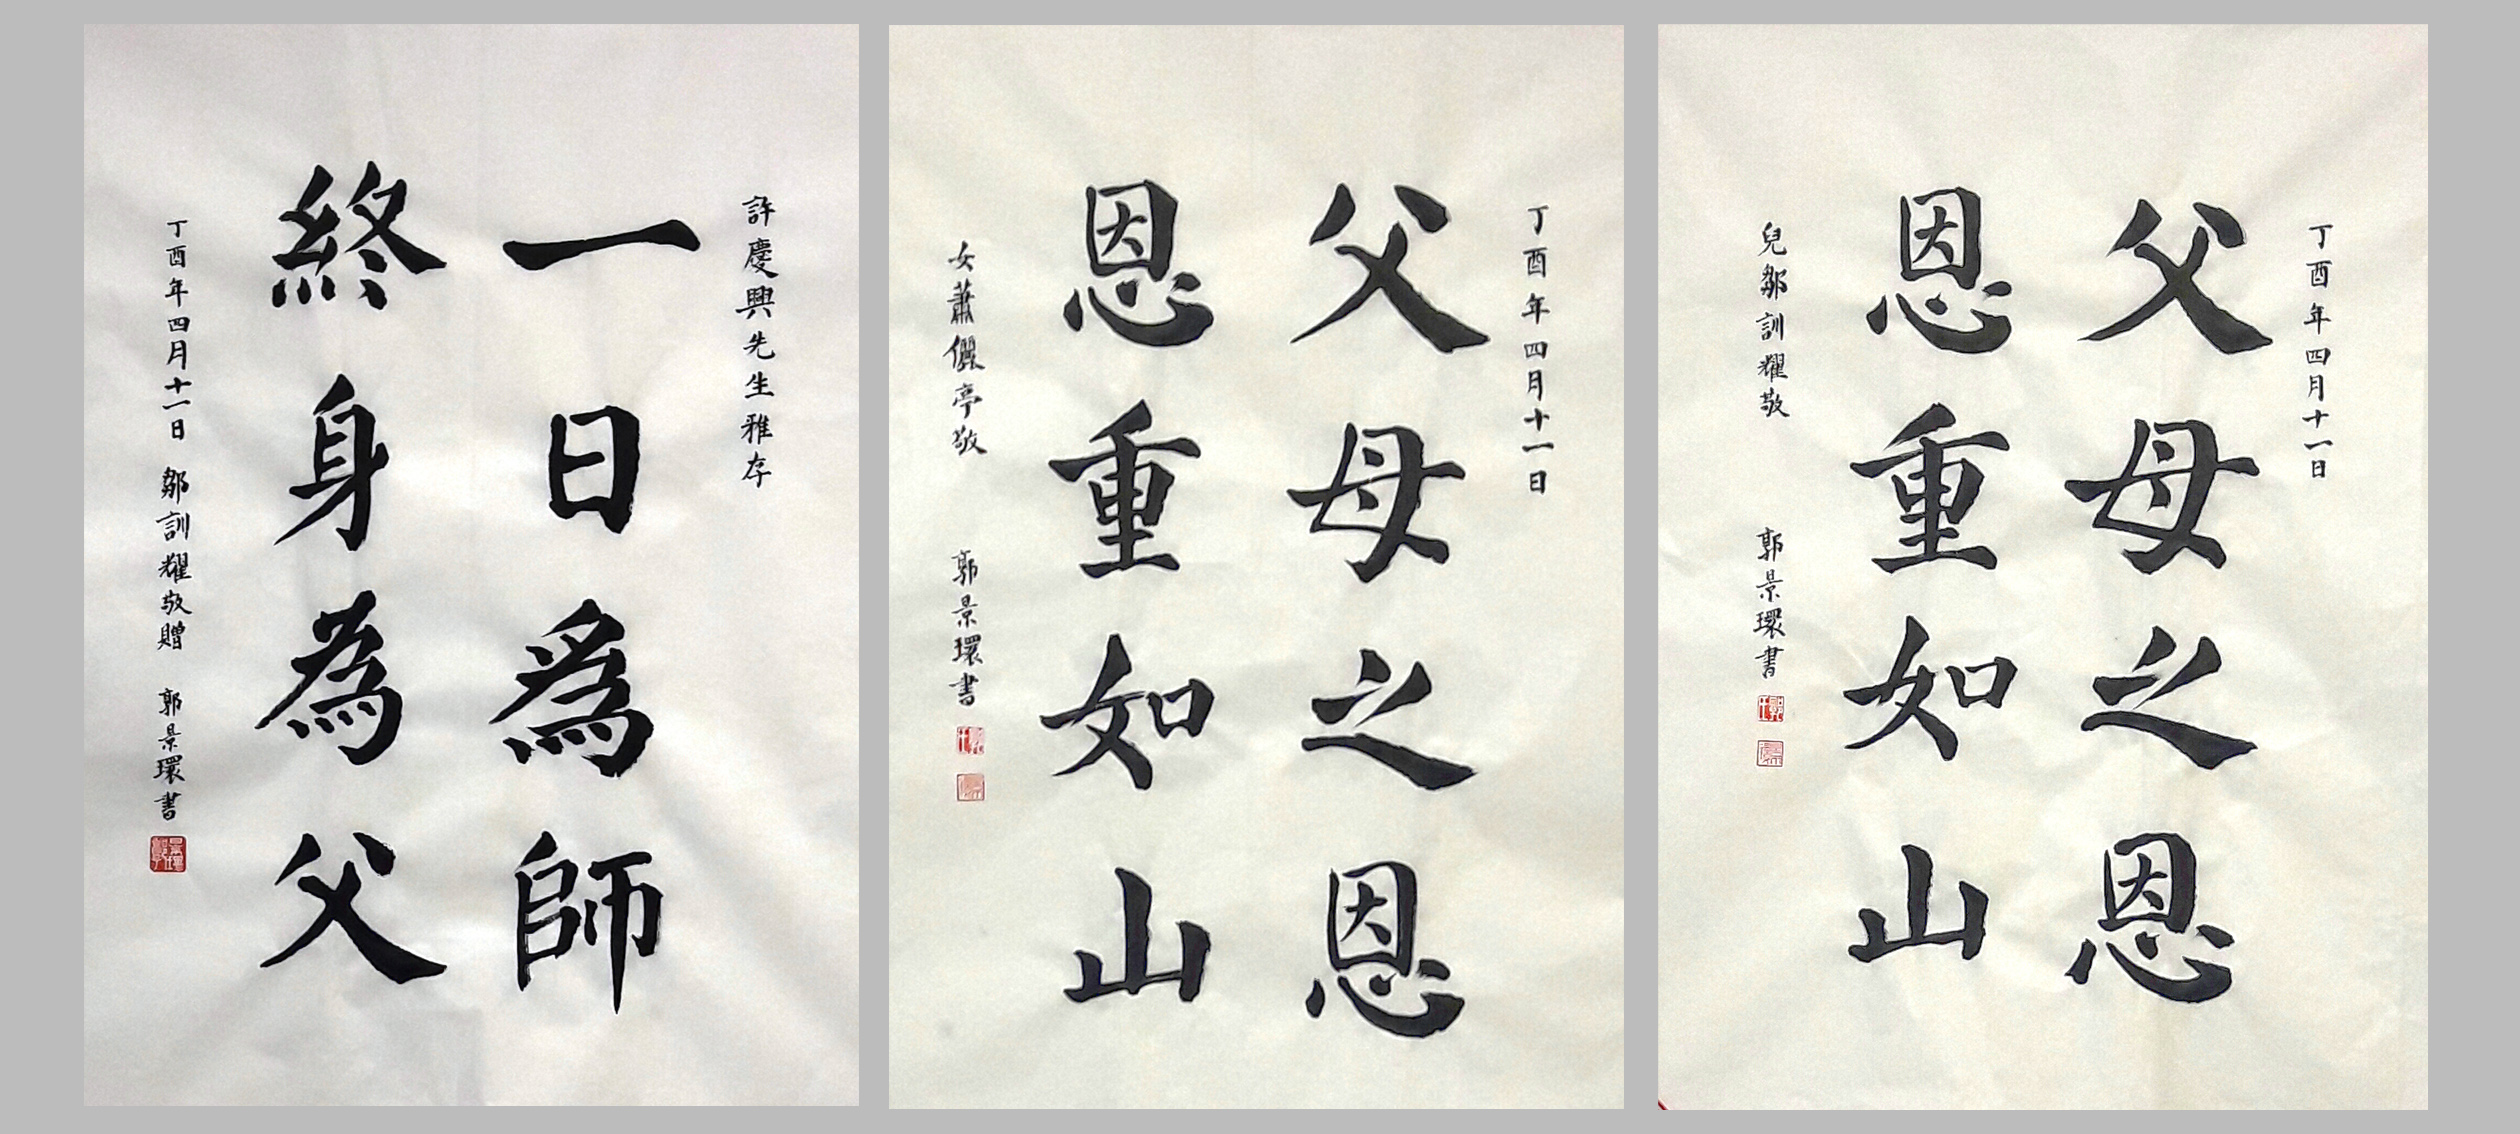 許慶興先生雅存
一日爲師
終身為父
丁酉年四月十一日 鄒訓耀敬贈 郭景環書
丁酉年四月十一日
父母之恩
恩重如山
女蕭儷亭敬 郭景環書
丁酉年四月十一日
父母之恩
恩重如山
兒鄒訓耀敬 郭景環書